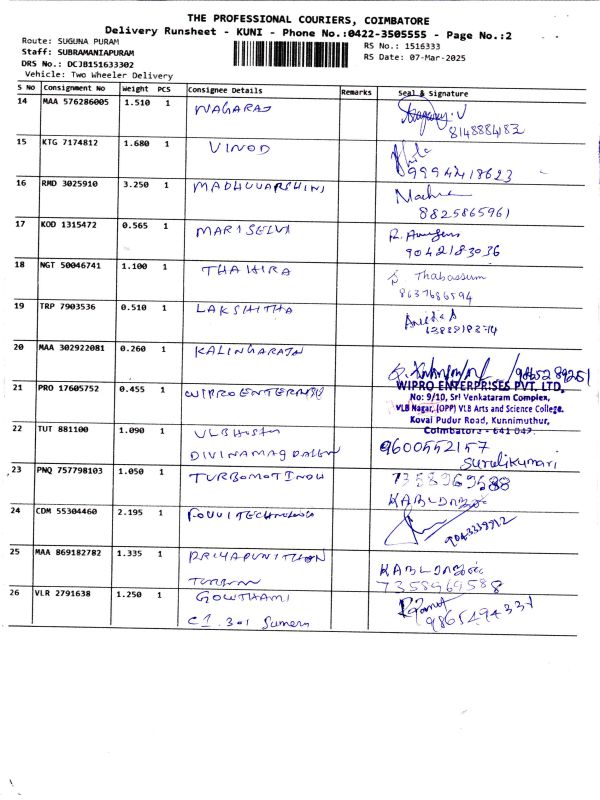 THE PROFESSIONAL COURIERS, COIMBATORE
Delivery Runsheet - KUNI - Phone No.:0422-3505555 - Page No.:2
Route: SUGUNA PURAM
RS No.: 1516333
Staff: SUBRAMANIAPURAM
RS Date: 07-Mar-2025
DRS No.: DCJB151633302
Vehicle: Two Wheeler Delivery
S No Consignment No Weight PCS Consignee Details Remarks Seal & Signature
14 MAA 576286005 1.510 1 NAGARAJ
8148884183
15 KTG 7174812 1.680 1 VINOD
9994218623
16 RMD 3025910 3.250 1 MADHUVARSHINI
8825865961
17 KOD 1315472 0.565 1 MARISELVI
9042183036
18 NGT 50046741 1.100 1 THAHIRA Thabassum
8637686594
19 TRP 7903536 0.510 1 LAKSHITHA
20 MAA 302922081 0.260 1 KALINGARAJA
9865289251
21 PRO 17605752 0.455 1 WIPRO ENTERPRISE
WIPRO ENTERPRISES PVT. LTD.
No: 9/10, Sri Venkataram Complex,
VLB Nagar, (OPP) VLB Arts and Science College,
Kovai Pudur Road, Kunnimuthur,
Coimbatore - 641 042.
22 TUT 881100 1.090 1 VLB
9600552157
Surulikumari
23 PNQ 757798103 1.050 1
7358969588
24 CDM 55304460 2.195 1
9043339912
25 MAA 869182782 1.335 1
7358969588
26 VLR 2791638 1.250 1 GOWTHAMI
9865494331
C1. 301